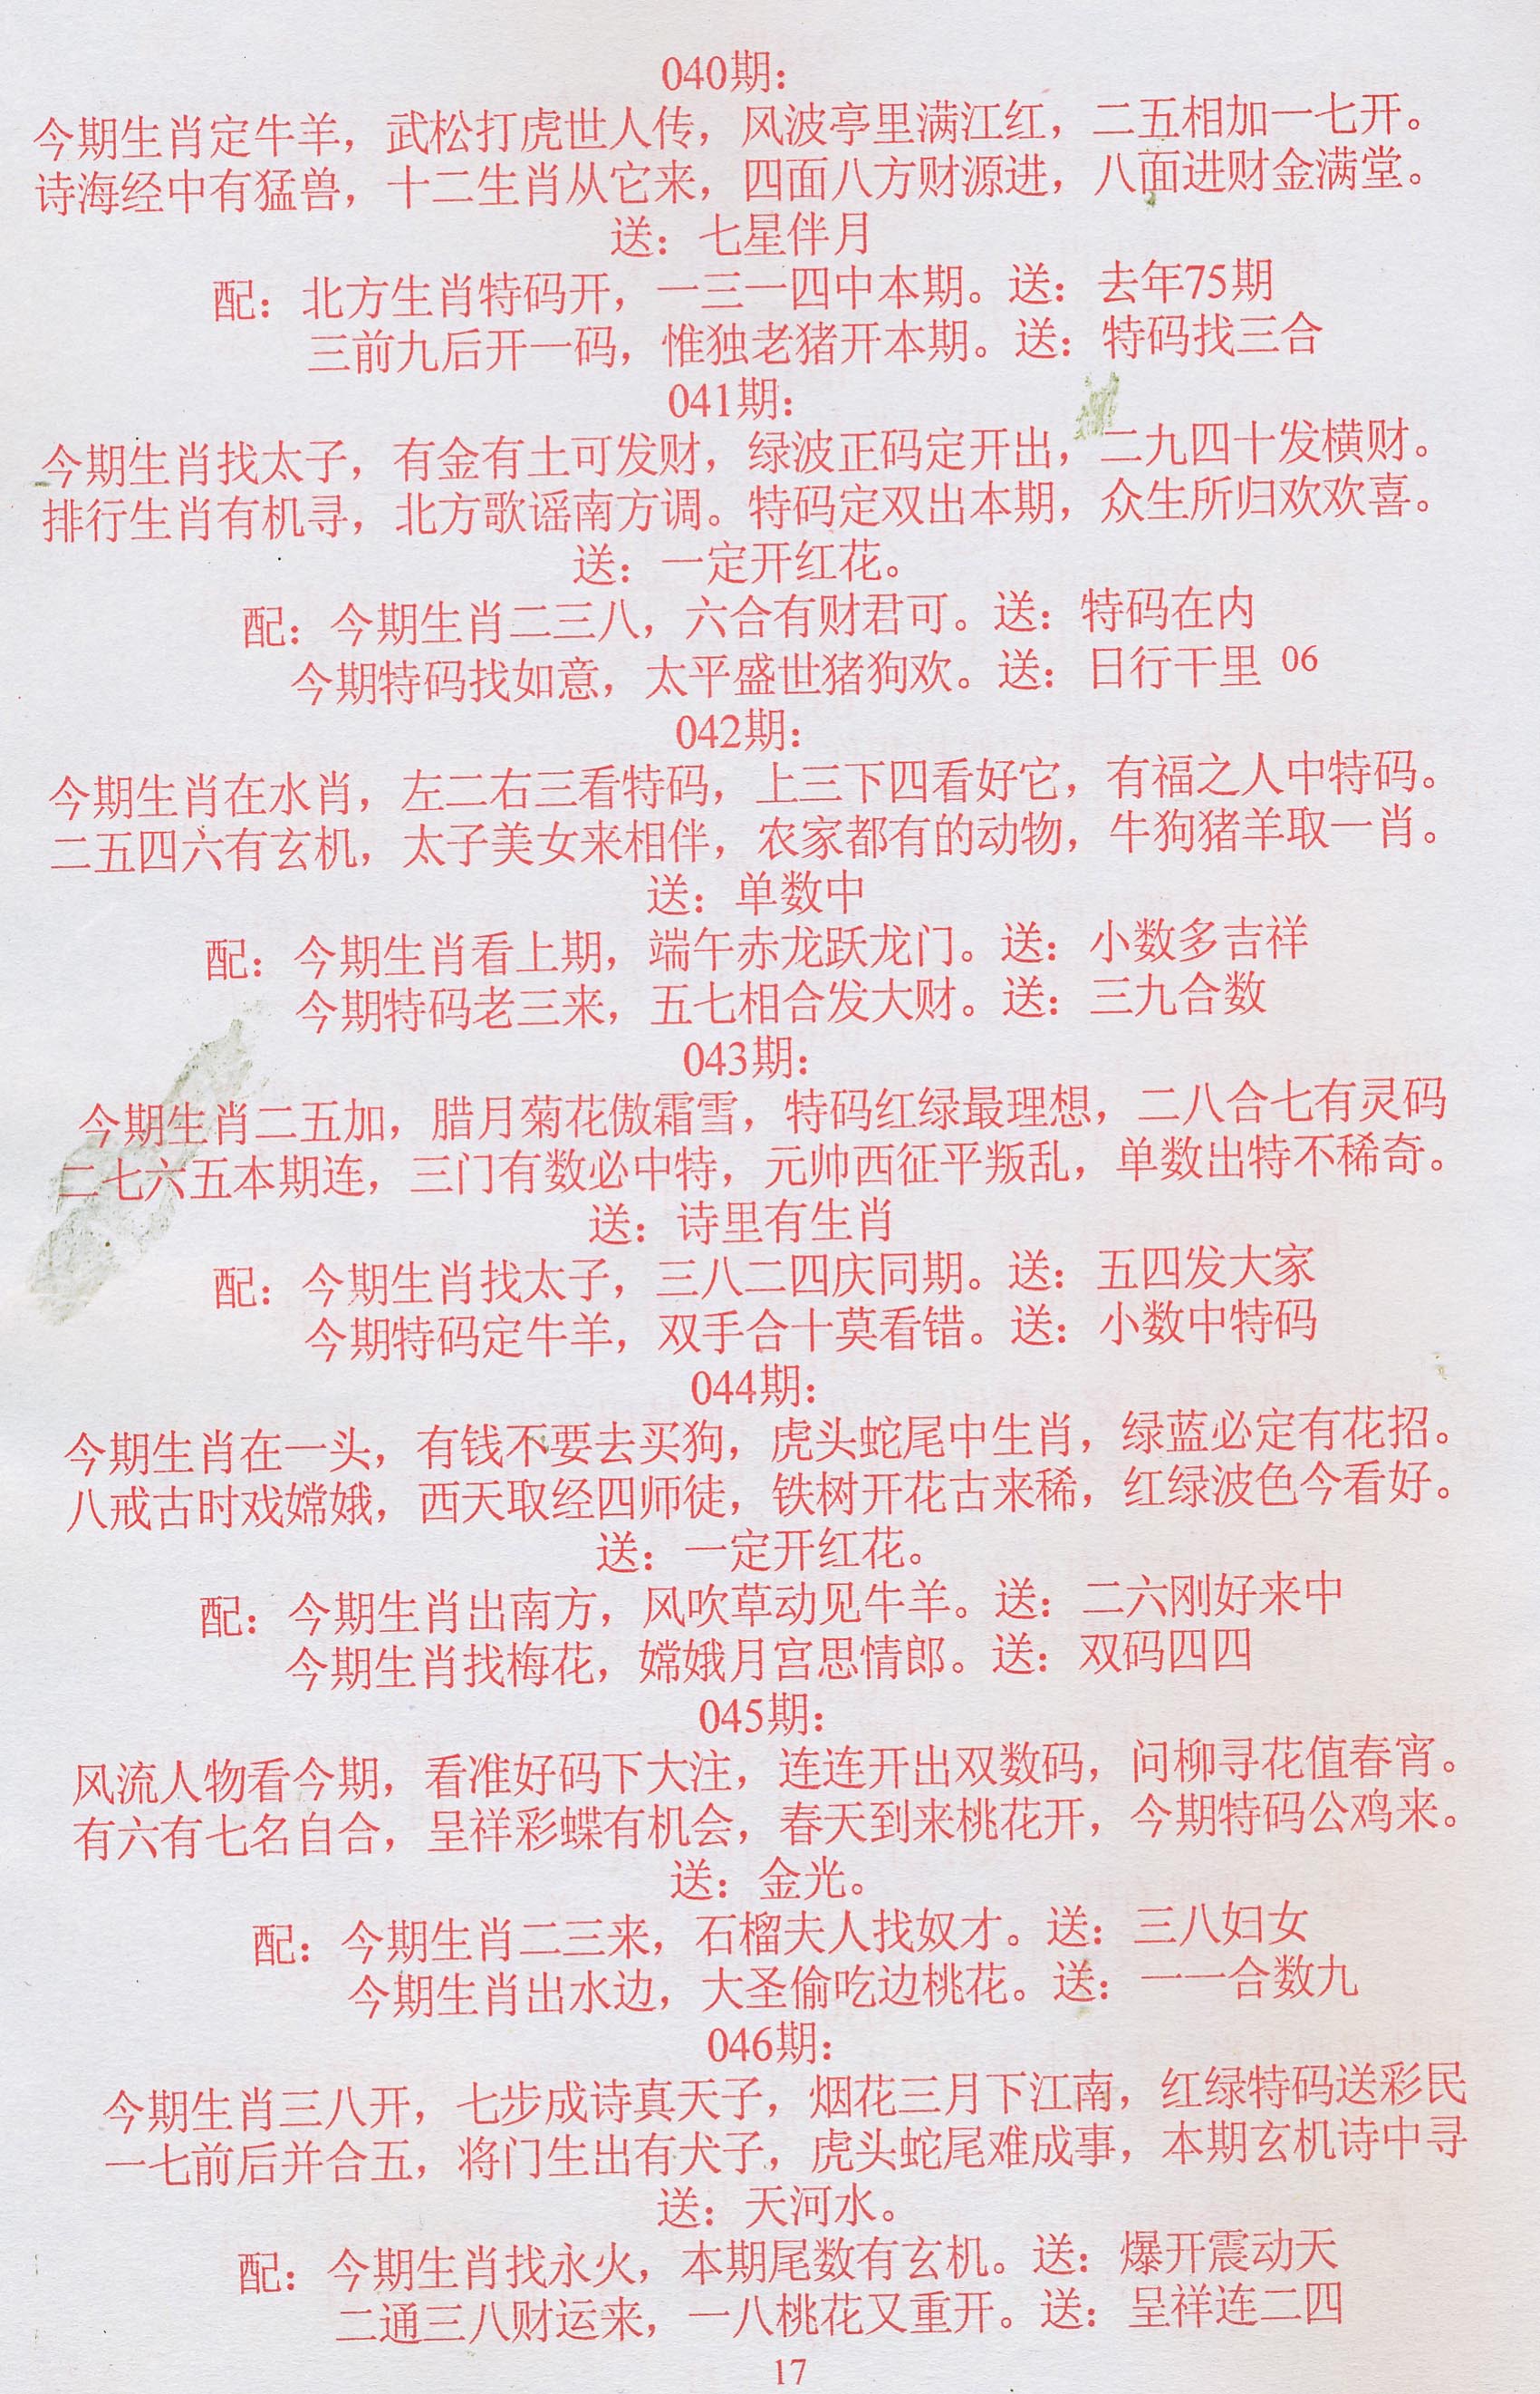 040期：
今期生肖定牛羊，武松打虎世人传，风波亭里满江红，二五相加一七开。
诗海经中有猛兽，十二生肖从它来，四面八方财源进，八面进财金满堂。
送：七星伴月
配：北方生肖特码开，一三一四中本期。送：去年75期
三前九后开一码，惟独老猪开本期。送：特码找三合
041期：
今期生肖找太子，有金有土可发财，绿波正码定开出，二九四十发横财。
排行生肖有机寻，北方歌谣南方调。特码定双出本期，众生所归欢欢喜。
送：一定开红花。
配：今期生肖二三八，六合有财君可。送：特码在内
今期特码找如意，太平盛世猪狗欢。送：日行干里 06
042期：
今期生肖在水肖，左二右三看特码，上三下四看好它，有福之人中特码。
二五四六有玄机，太子美女来相伴，农家都有的动物，牛狗猪羊取一肖。
送：单数中
配：今期生肖看上期，端午赤龙跃龙门。送：小数多吉祥
今期特码老三来，五七相合发大财。送：三九合数
043期：
今期生肖二五加，腊月菊花傲霜雪，特码红绿最理想，二八合七有灵码
二七六五本期连，三门有数必中特，元帅西征平叛乱，单数出特不稀奇。
送：诗里有生肖
配：今期生肖找太子，三八二四庆同期。送：五四发大家
今期特码定牛羊，双手合十莫看错。送：小数中特码
044期：
今期生肖在一头，有钱不要去买狗，虎头蛇尾中生肖，绿蓝必定有花招。
八戒古时戏嫦娥，西天取经四师徒，铁树开花古来稀，红绿波色今看好。
送：一定开红花。
配：今期生肖出南方，风吹草动见牛羊。送：二六刚好来中
今期生肖找梅花，嫦娥月宫思情郎。送：双码四四
045期：
风流人物看今期，看准好码下大注，连连开出双数码，问柳寻花值春宵。
有六有七名自合，呈祥彩蝶有机会，春天到来桃花开，今期特码公鸡来。
送：金光。
配：今期生肖二三来，石榴夫人找奴才。送：三八妇女
今期生肖出水边，大圣偷吃边桃花。送：一一合数九
046期：
今期生肖三八开，七步成诗真天子，烟花三月下江南，红绿特码送彩民
一七前后并合五，将门生出有犬子，虎头蛇尾难成事，本期玄机诗中寻
送：天河水。
配：今期生肖找永火，本期尾数有玄机。送：爆开震动天
二通三八财运来，一八桃花又重开。送：呈祥连二四
17